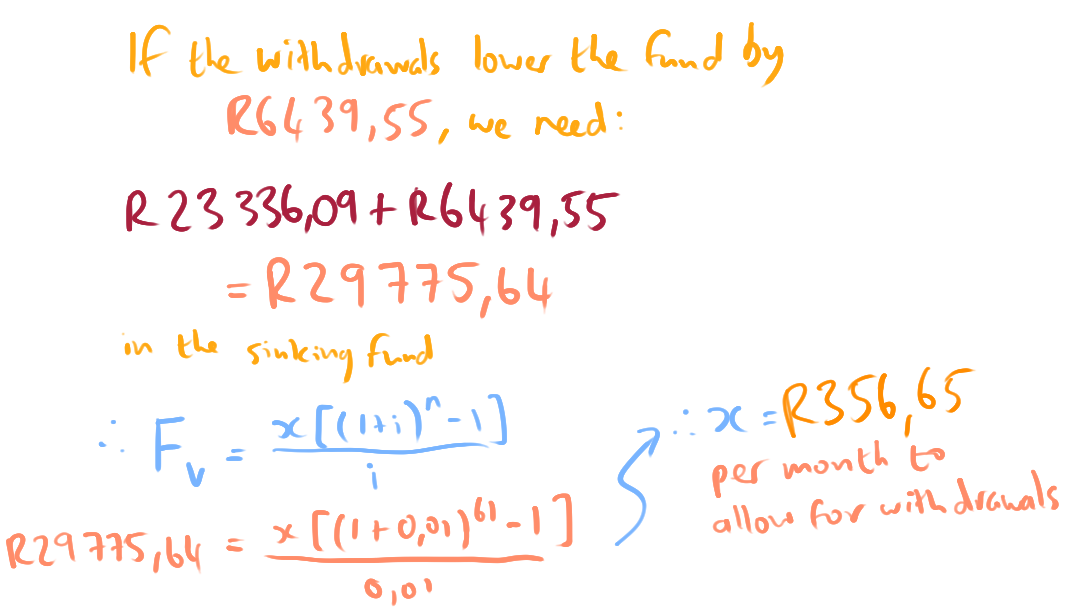 If the withdrawals lower the fund by
R6439,55, we need:
R23 336,09 + R6439,55
= R29775,64
in the sinking fund
∴ Fv = x[(1+i)^n - 1] / i
R29775,64 = x[(1+0,01)^61 - 1] / 0,01
∴ x = R356,65
per month to
allow for withdrawals